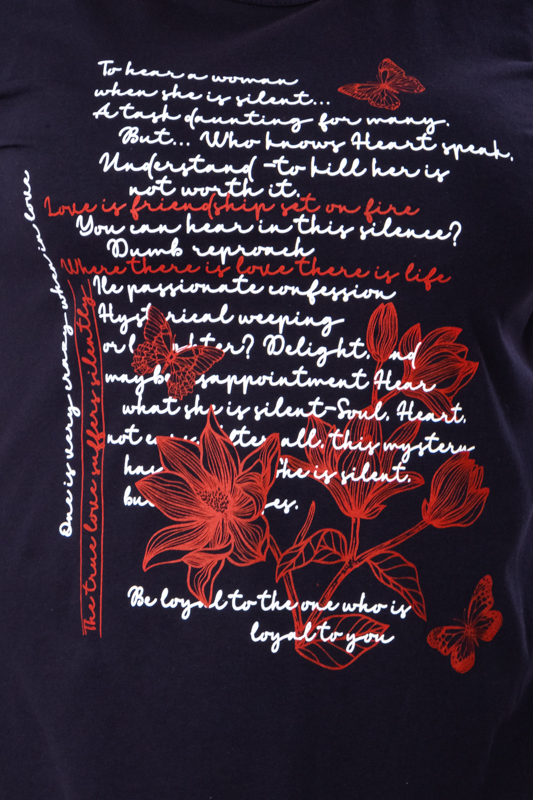 To hear a woman
when she is silent...
A task daunting for many.
But... Who knows Heart speak.
Understand -to kill her is
not worth it.
Love is friendship set on fire
You can hear in this silence?
Dumb reproach
Where there is love there is life
He passionate confession
Hysterical weeping
or? Delight. nd
maybe sappointment Hear
what she is silent-Soul. Heart.
not after all. this mystery
She is silent.
es.
Be loyal to the one who is
loyal to you
One is very crazy when in love
The true love suffers silently